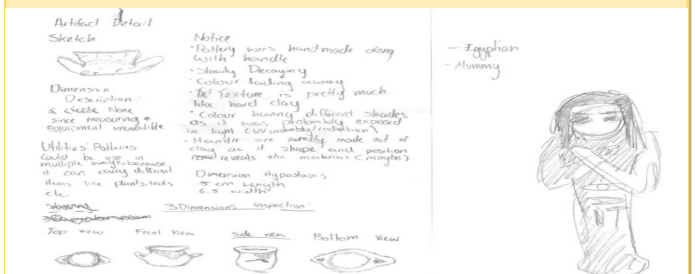 Artifact Detail
Sketch
Dimension
Description:
None
since measuring
equipment unavailable
Utilities: Potteries
Could be use in
multiple ways, because
it can carry different
items like plants, tools
etc.
Notice
• Pottery was handmade along
with handle
• Slowly Decaying
• Colour fading away
• Texture is pretty much
like hard clay
• Colour having different shades
as it was probably exposed
in light (UV probably/radiation)
• Handle are made out of
clay as it shape and position
reveals the material (maybe)
Dimension Hypostasis
5 cm Length
6.5 width
3 Dimensions inspection:
Top view Front View Side view Bottom View
- Egyptian
- Mummy